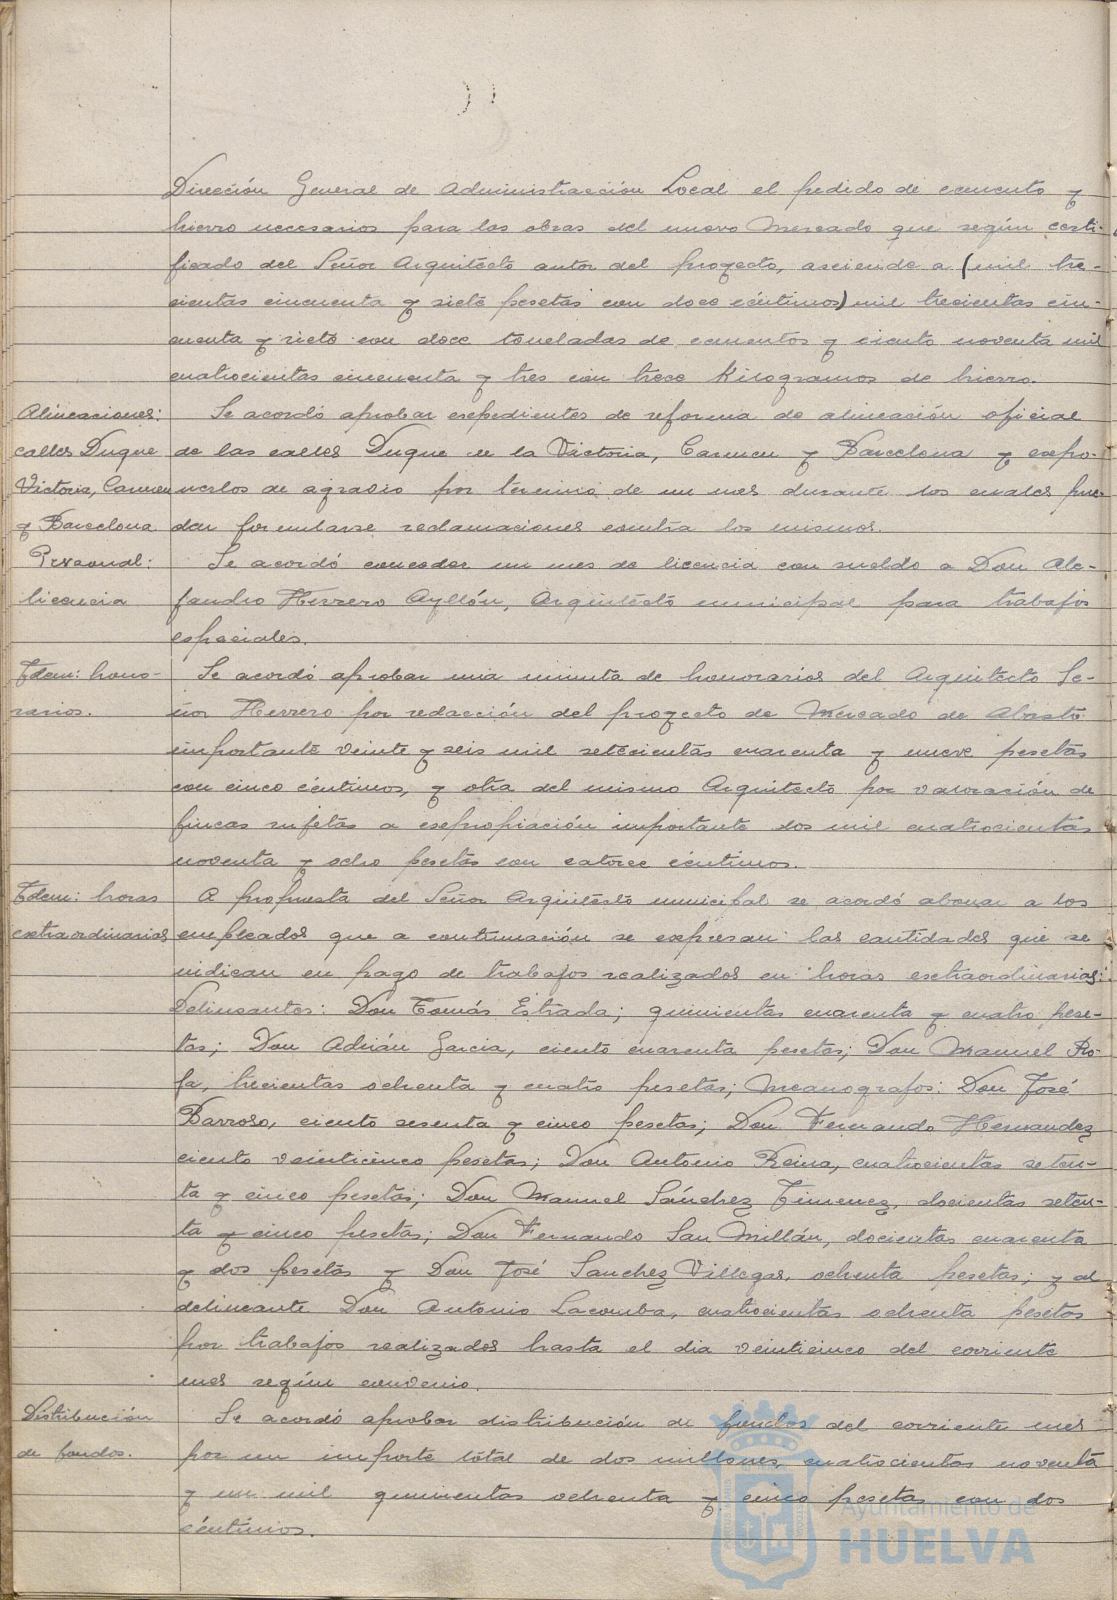 Dirección General de Administracción Local el pedido de cemento y
hierro necesarios para las obras del nuevo Mercado que según certi-
ficado del Señor Arquitecto autor del proyecto, asciende a (mil tre-
cientas cincuenta y siete pesetas con doce céntimos) mil trecientas cin-
cuenta y siete con doce toneladas de cementos y ciento noventa mil
cuatrocientas cincuenta y tres con trece Kilogramos de hierro.
Alineaciones: Se acordó aprobar expedientes de reforma de alineación oficial
calles Duque de las calles Duque de la Victoria, Carmen y Barcelona y expo-
Victoria, Carmen nerlos de agravio por termino de un mes durante los cuales pue-
y Barcelona dan formularse reclamaciones contra los mismos.
Personal: Se acordó conceder un mes de licencia con sueldo a Don Ale-
licencia jandro Herrero Ayllón, Arquitecto municipal para trabajos
especiales.
Idem: hono- Se acordó aprobar una minuta de honorarios del Arquitecto Se-
rarios. ñor Herrero por redacción del proyecto de Mercado de Abasto
importante veinte y seis mil setecientas cuarenta y nueve pesetas
con cinco céntimos, y otra del mismo Arquitecto por valoración de
fincas sujetas a expropiación importante dos mil cuatrocientas
noventa y ocho pesetas con catorce céntimos.
Idem: horas A propuesta del Señor Arquitecto municipal se acordó abonar a los
extraordinarias empleados que a continuación se expresan las cantidades que se
indican en pago de trabajos realizados en horas extraordinarias:
Delineantes: Don Tomás Estrada; quinientas cuarenta y cuatro pese-
tas; Don Adrián Garcia, ciento cuarenta pesetas; Don Manuel Ro-
fa, trecientas ochenta y cuatro pesetas; Mecanografos: Don José
Barroso, ciento sesenta y cinco pesetas; Don Fernando Hernandez
ciento veinticinco pesetas; Don Antonio Reina, cuatrocientas seten-
ta y cinco pesetas; Don Manuel Sánchez Timenez, docientas seten-
ta y cinco pesetas; Don Fernando San Millán, docientas cuarenta
y dos pesetas y Don José Sanchez Villegas, ochenta pesetas; y al
delineante Don Antonio Lacomba, cuatrocientas ochenta pesetas
por trabajos realizados hasta el dia veinticinco del corriente
mes según convenio.
Distribución Se acordó aprobar distribución de fondos del corriente mes
de fondos. por un importe total de dos millones, cuatrocientas noventa
y un mil quinientas ochenta y cinco pesetas con dos
céntimos.
Ayuntamiento de
HUELVA